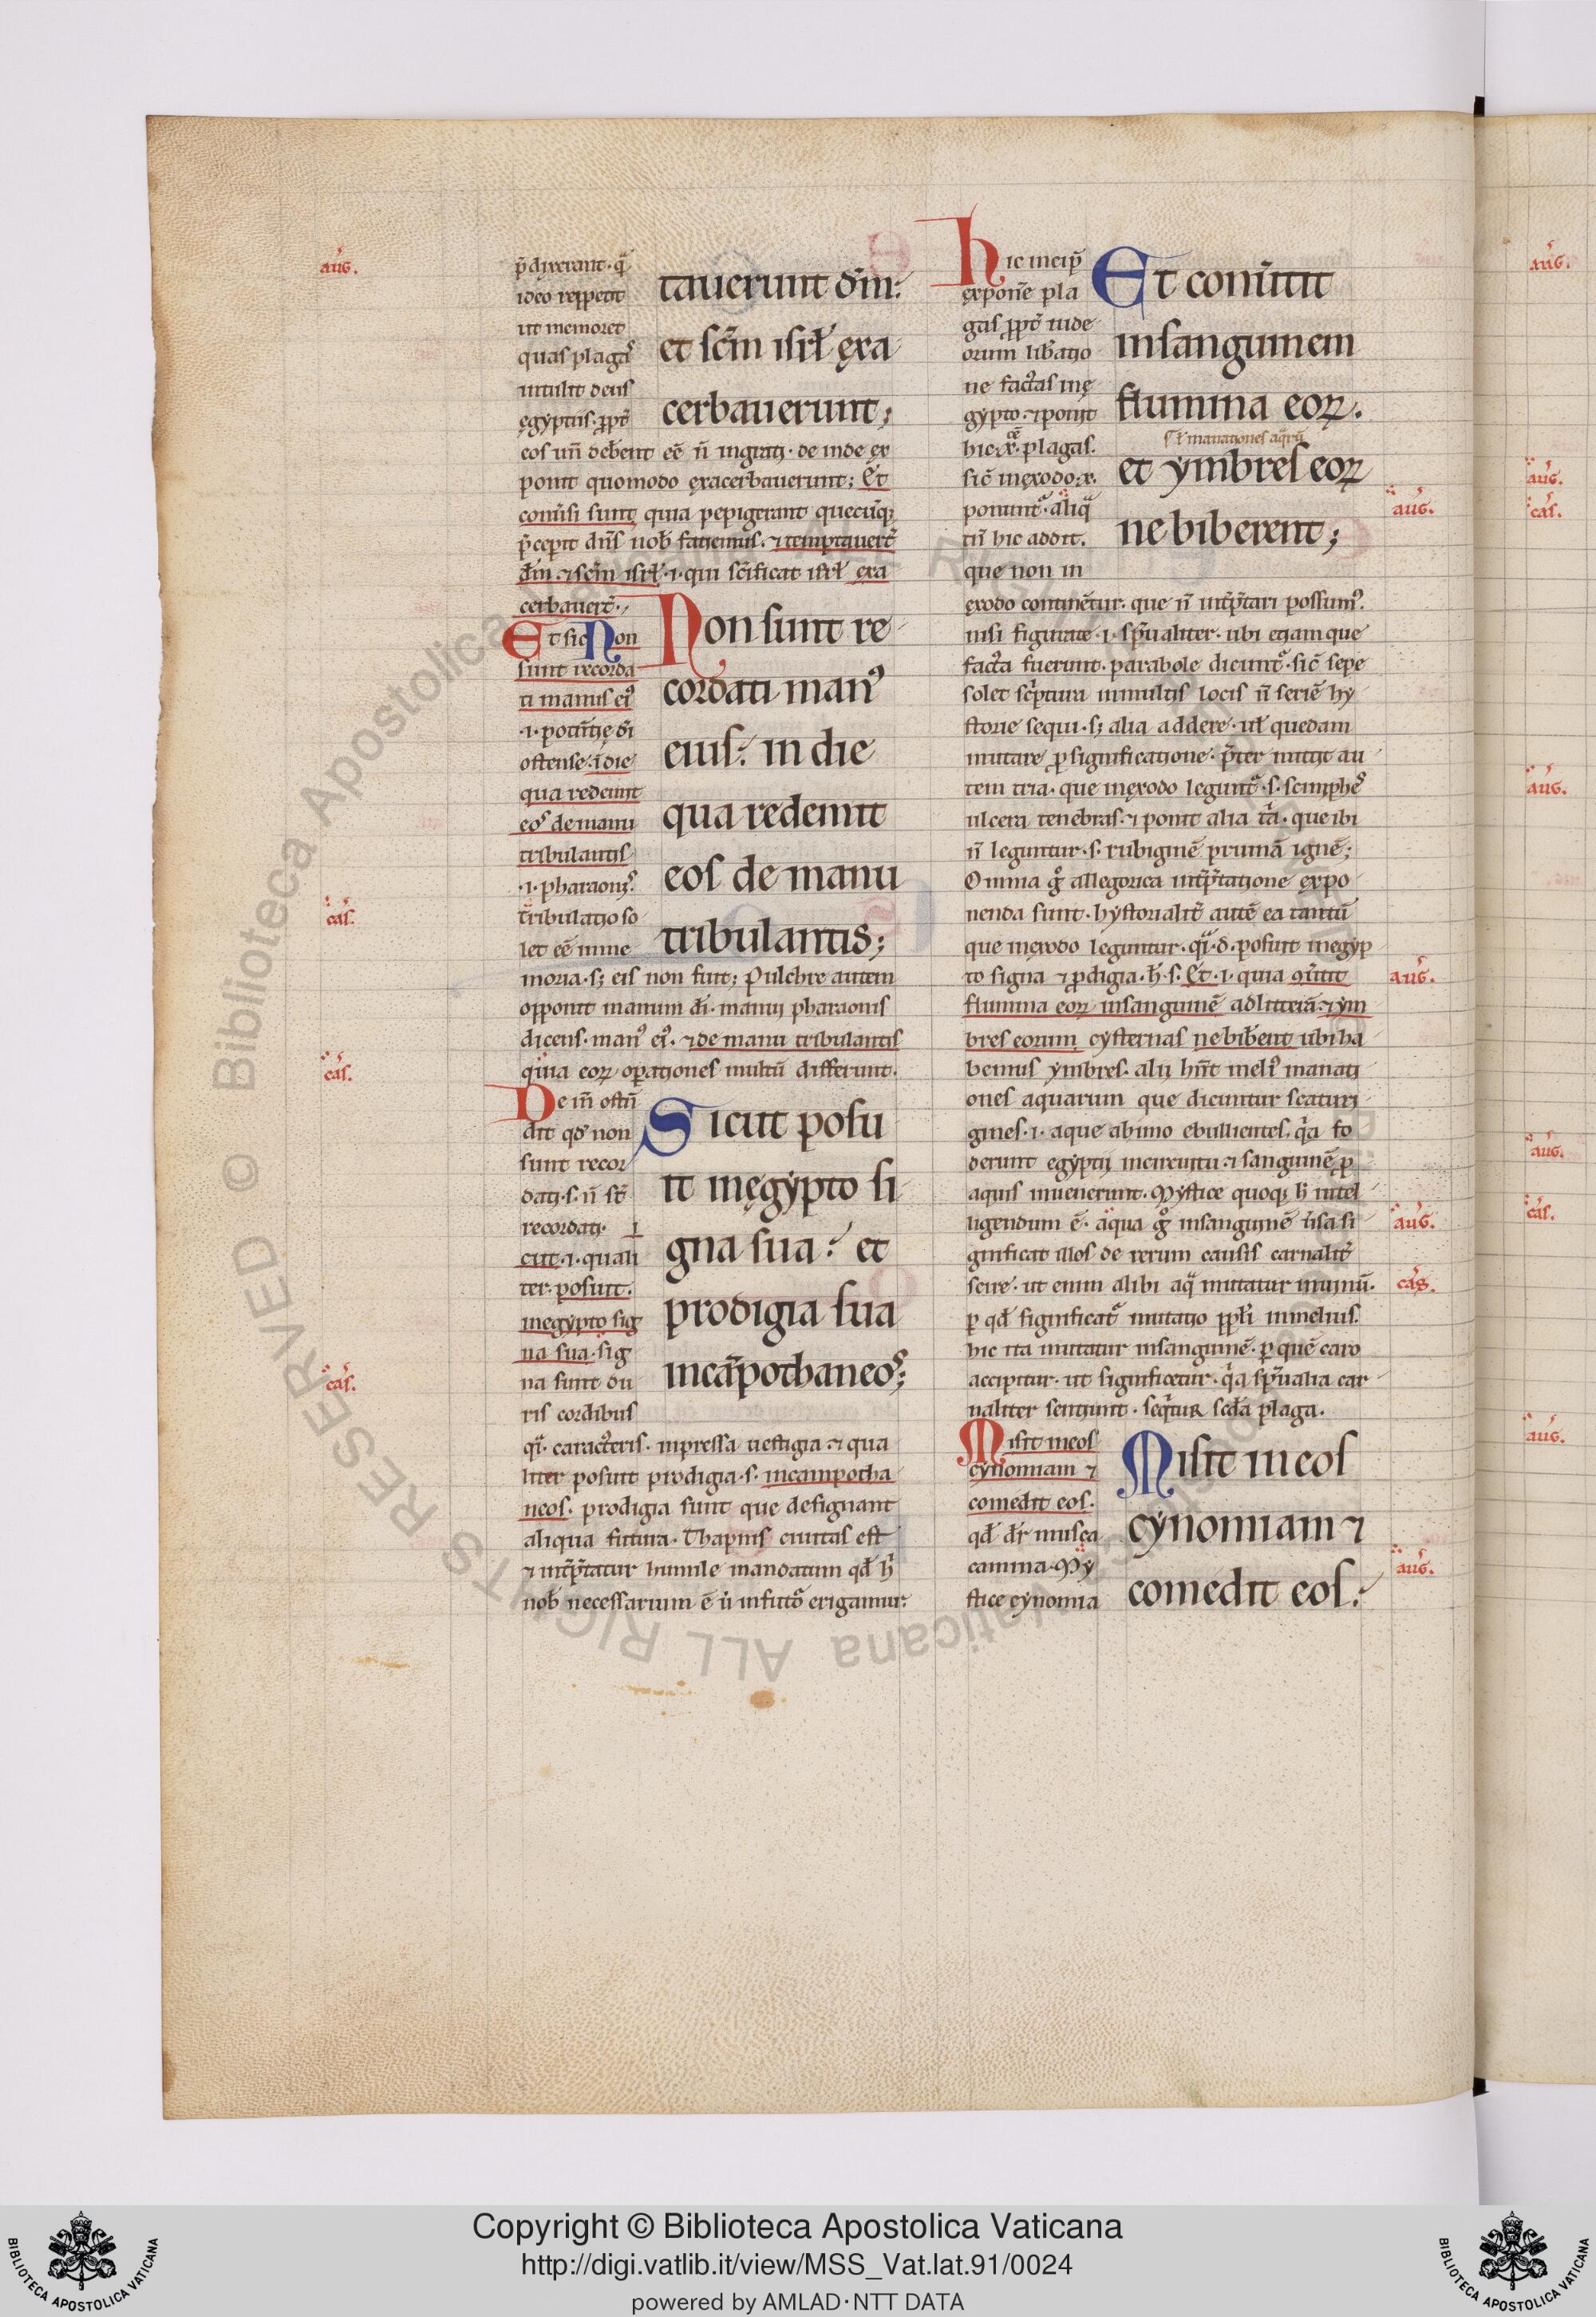 aug̃.
p̃dixerant. q̃
ideo reppetit
ut memoret
quas plagas
intulit deus
ęgyptiis. ꝓpt̃
eos uñ deberent eẽ ñ ingrati. de inde ex
ponit quomodo exacerbauerunt; Et
conũsi sunt quia pepigerant quecũq;
p̃cepit dñs nob̃ faciemus. ⁊ temptauer̃t
dm̃. ⁊ scm̃ isrł .i. qui scĩficat isrł exa
cerbauer̃t.
tauerunt dm̃:
et scm̃ isrł ęxa
cerbauerunt;
Et sic Non
sunt recorda
ti manus ei⁹
.i. potẽtię dĩ
ostense. ĩ die
qua redemit
eos de manu
tribulantis
.i. pharaonis.
Non sunt re
cordati man⁹
eius: in die
qua redemit
eos de manu
tribulantis;
cas̃.
tribulatio so
let eẽ in me
moria. s; eis non fuit; Pulchre autem
opponit manum dĩ. manui pharaonis
dicens. man⁹ ei⁹. ⁊ de manu tribulantis
cas̃.
quia eoꝝ oꝑationes multũ differunt.
De iñ ostẽ
dit qd̃ non
sunt recor
dati. s. ñ st̃
recordati. i
cut .i. quali
ter. posuit.
inegypto sig
na sua. sig
cas̃.
na sunt du
ris cordibus
Sicut posu
it inęgypto si
gna sua: et
prodigia sua
incãpothaneos;
q̃i. caracteris. inpressa uestigia. ⁊ qua
liter posuit prodigia. s. incampotha
neos. prodigia sunt que designant
aliqua futura. Thapnis ciuitas est
⁊ int̃p̃tatur humile mandatum qd̃ h̃
nob̃ necessarium ẽ ũ infutr̃o erigamur:
Hic incip̃
exponẽ pla
gas ꝓpt̃ iude
orum libatio
ne factas inę
gypto. ⁊ ponit
hic .x. plagas.
sic̃ inexodo .x.
ponunt̃. aliq̃
tñ hic addit.
que non in
Et conũtit
insanguinem
flumina eoꝝ.
et ymbres eoꝝ
ne biberent;
aug̃.
exodo continẽtur. que ñ int̃p̃tari possum⁹.
nisi figurate .i. sp̃ualiter. ubi etiam que
facta fuerunt. parabole dicunt̃. sic̃ sepe
solet sc̃ptura inmultis locis ñ seriẽ hy
storie sequi. s; alia addere. uł quedam
mutare ꝓ significatione. p̃ter mittit au
tem tria. que inexodo legunt̃. s. sciniphes
ulcera tenebras. ⁊ ponit alia t̃a. que ibi
ñ leguntur. s. rubiginẽ pruinã ignẽ;
Omnia g̊ allegorica int̃p̃tatione expo
nenda sunt. hystorialit̃ autẽ ea tantũ
que inexodo leguntur. q̃i. d. posuit inegyp
to signa ⁊ ꝓdigia. h̃. s. Et .i. quia ꝯũtit
flumina eoꝝ insanguinẽ adlitterã. ⁊ ym
aug̃.
bres eorum cysternas ne biberent ubi ha
bemus ymbres. alii hñt meli⁹ manati
ones aquarum que dicuntur scaturi
gines .i. aque abimo ebullientes. q̃a fo
derunt egyptii incircuitu ⁊ sanguinẽ ꝓ
aquis inuenerunt. Mystice quoq; h̃ intel
ligendum ẽ. aqua g̊ insanguinẽ ũsa si
aug̃.
gnificat illos de rerum causis carnalit̃
scire. ut enim alibi aq̃ mutatur inuinũ.
cas̃.
ꝑ qd̃ significat̃ mutatio pp̃li inmelius.
hic ita mutatur insanguinẽ. ꝑ quẽ caro
accipitur. ut significetur. q̃a sp̃ualia car
naliter sentiunt. seq̃tur sed̃a plaga.
Misit ineos
cynomiam ⁊
comedit eos.
qd̃ dr̃ musca
canina. My
stice cynomia
Misit in eos
cynomiam ⁊
comedit eos:
aug̃.
Copyright © Biblioteca Apostolica Vaticana
http://digi.vatlib.it/view/MSS_Vat.lat.91/0024
powered by AMLAD·NTT DATA
BIBLIOTECA APOSTOLICA VATICANA
BIBLIOTECA APOSTOLICA VATICANA